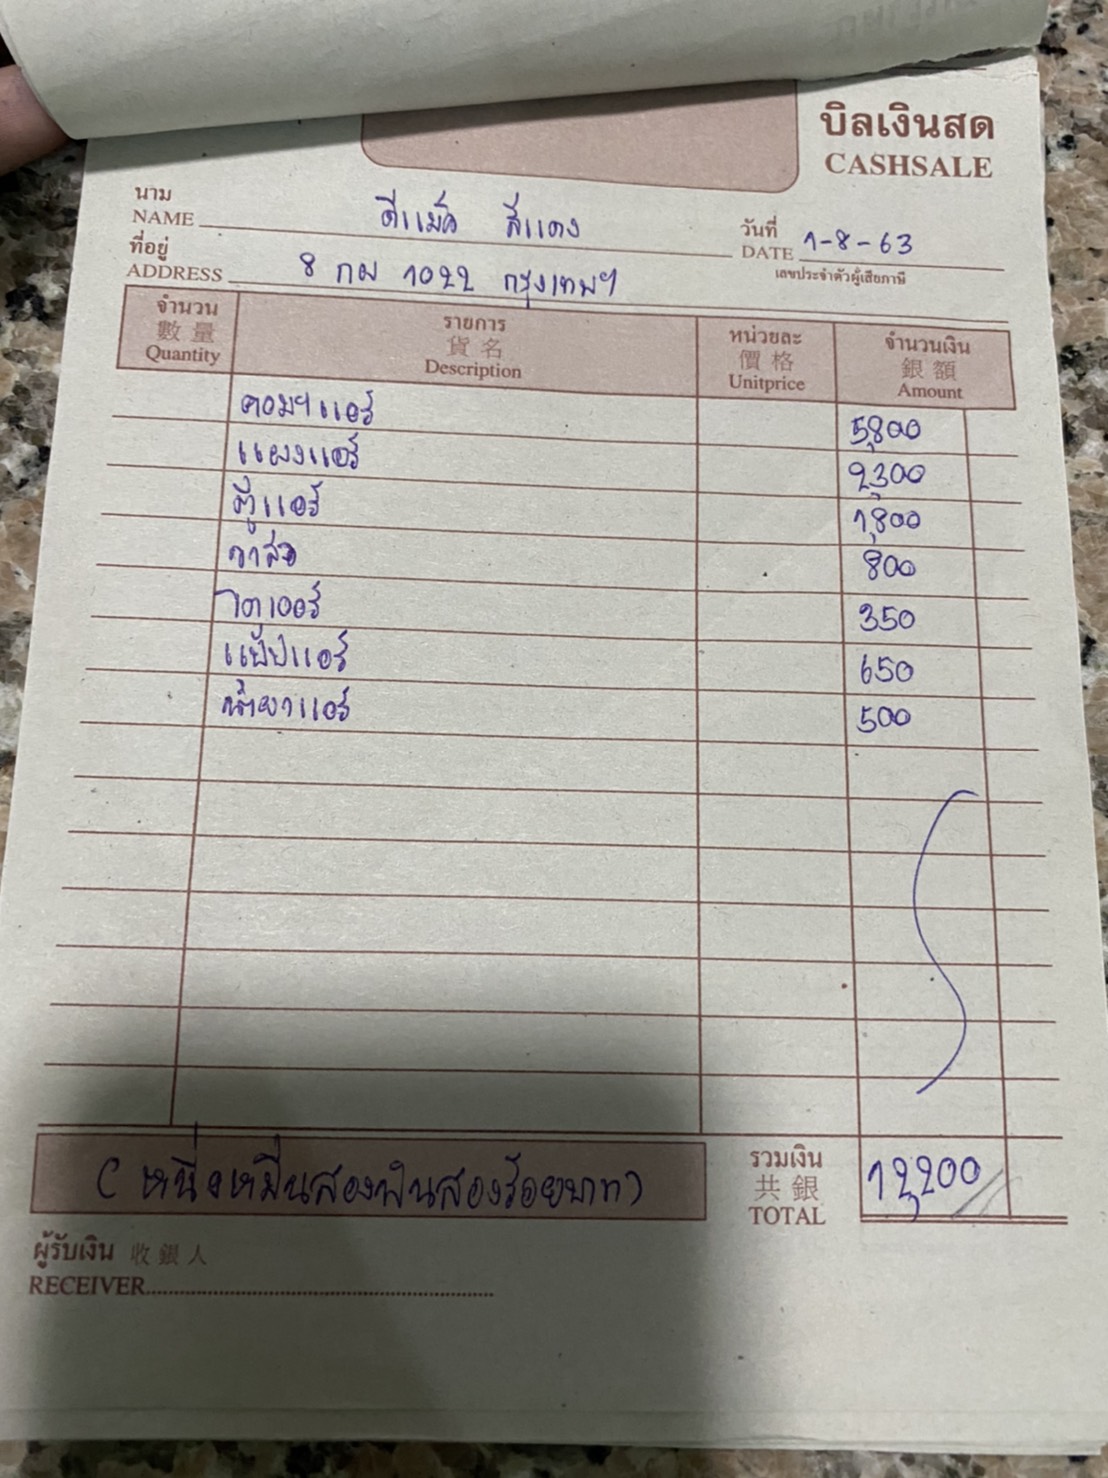 บิลเงินสด
CASHSALE
นาม
NAME ดีแม็ค สีแดง
วันที่
DATE 1-8-63
ที่อยู่
ADDRESS 8 กผ 1022 กรุงเทพฯ
เลขประจำตัวผู้เสียภาษี
จำนวน 數量 Quantity
รายการ 貨名 Description
หน่วยละ 價格 Unitprice
จำนวนเงิน 銀額 Amount
คอมฯแอร์ 5,800
แผงแอร์ 2,300
ตู้แอร์ 1,800
วาล์ว 800
ไดเออร์ 350
แป๊ปแอร์ 650
น้ำยาแอร์ 500
(หนึ่งหมื่นสองพันสองร้อยบาท)
รวมเงิน
共銀
TOTAL 12,200
ผู้รับเงิน 收銀人
RECEIVER